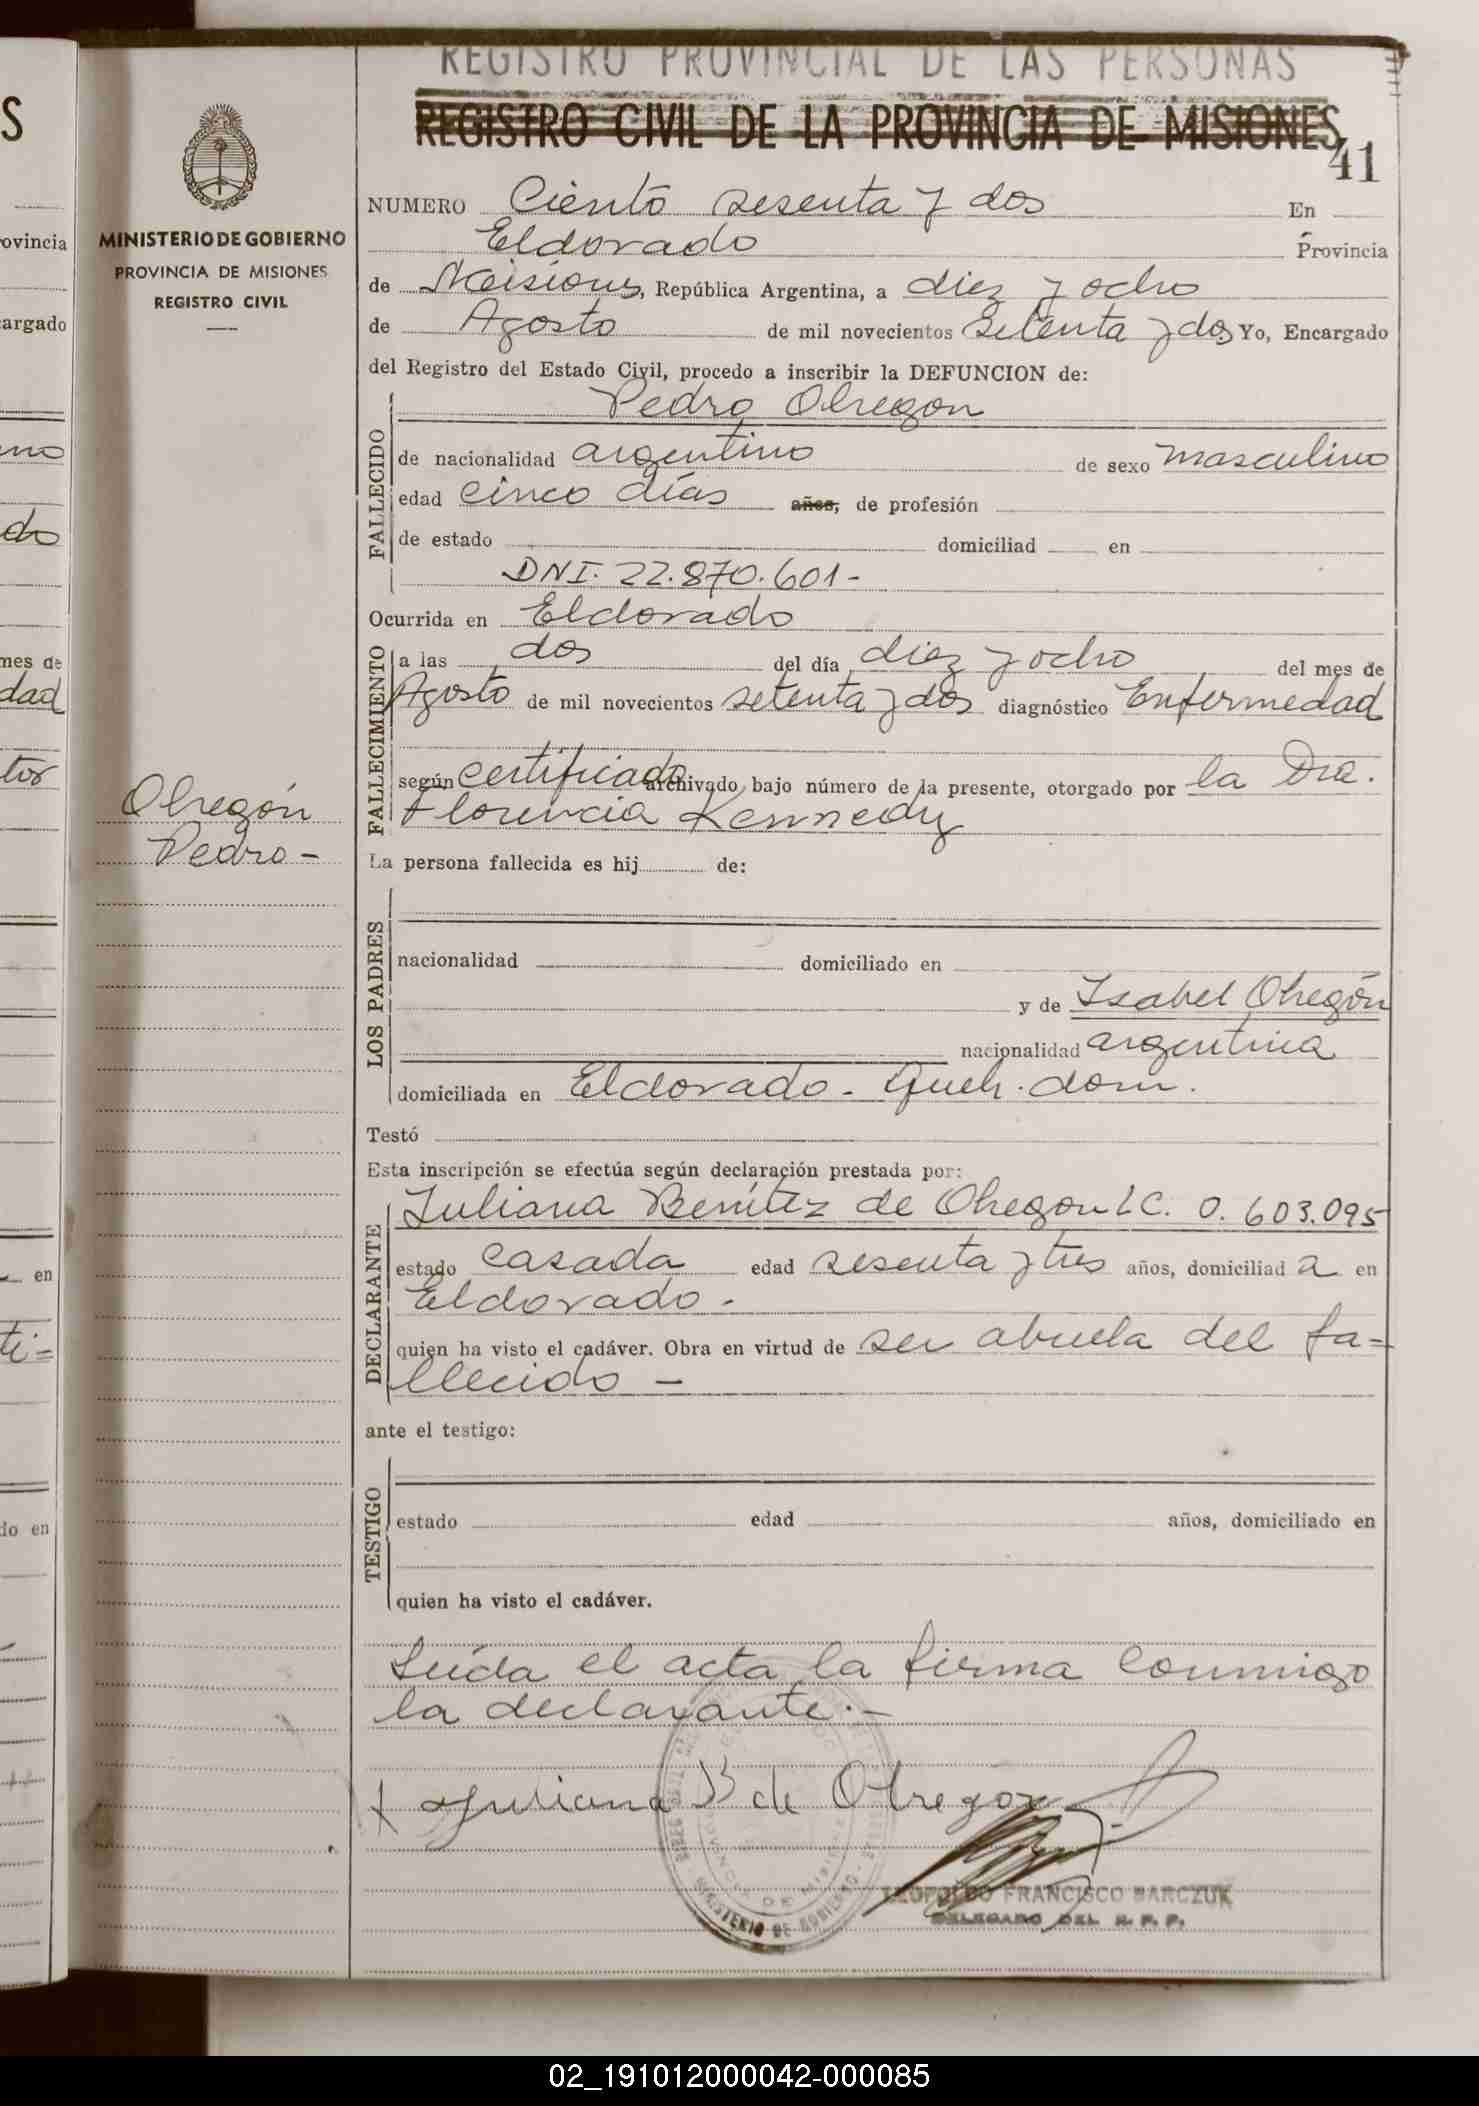 REGISTRO PROVINCIAL DE LAS PERSONAS
REGISTRO CIVIL DE LA PROVINCIA DE MISIONES
41
MINISTERIO DE GOBIERNO
PROVINCIA DE MISIONES
REGISTRO CIVIL
Obregón
Pedro -
NUMERO Ciento sesenta y dos En
Eldorado Provincia
de Misiones, República Argentina, a diez y ocho
de Agosto de mil novecientos setenta y dos Yo, Encargado
del Registro del Estado Civil, procedo a inscribir la DEFUNCION de:
Pedro Obregon
FALLECIDO
de nacionalidad argentino de sexo masculino
edad cinco días años, de profesión
de estado domiciliad en
DNI. 22.870.601-
Ocurrida en Eldorado
FALLECIMIENTO
a las dos del día diez y ocho del mes de
Agosto de mil novecientos setenta y dos diagnóstico Enfermedad
según certificado archivado bajo número de la presente, otorgado por la Dra.
Florencia Kennedy
La persona fallecida es hij de:
LOS PADRES
nacionalidad domiciliado en
y de Isabel Obregón
nacionalidad argentina
domiciliada en Eldorado - Queh. dom.
Testó
Esta inscripción se efectúa según declaración prestada por:
DECLARANTE
Juliana Benítez de Obregon LC. 0.603.095
estado casada edad sesenta y tres años, domiciliad a en
Eldorado -
quien ha visto el cadáver. Obra en virtud de ser abuela del fa=
llecido -
ante el testigo:
TESTIGO
estado edad años, domiciliado en
quien ha visto el cadáver.
Leída el acta la firma conmigo
la declarante.-
Juliana B de Obregón
LEOPOLDO FRANCISCO BARCZUK
DELEGADO DEL R. P. P.
MINISTERIO DE GOBIERNO
S
ovincia
argado
do
mes de
dad
tor
en
ti=
do en
02_191012000042-000085